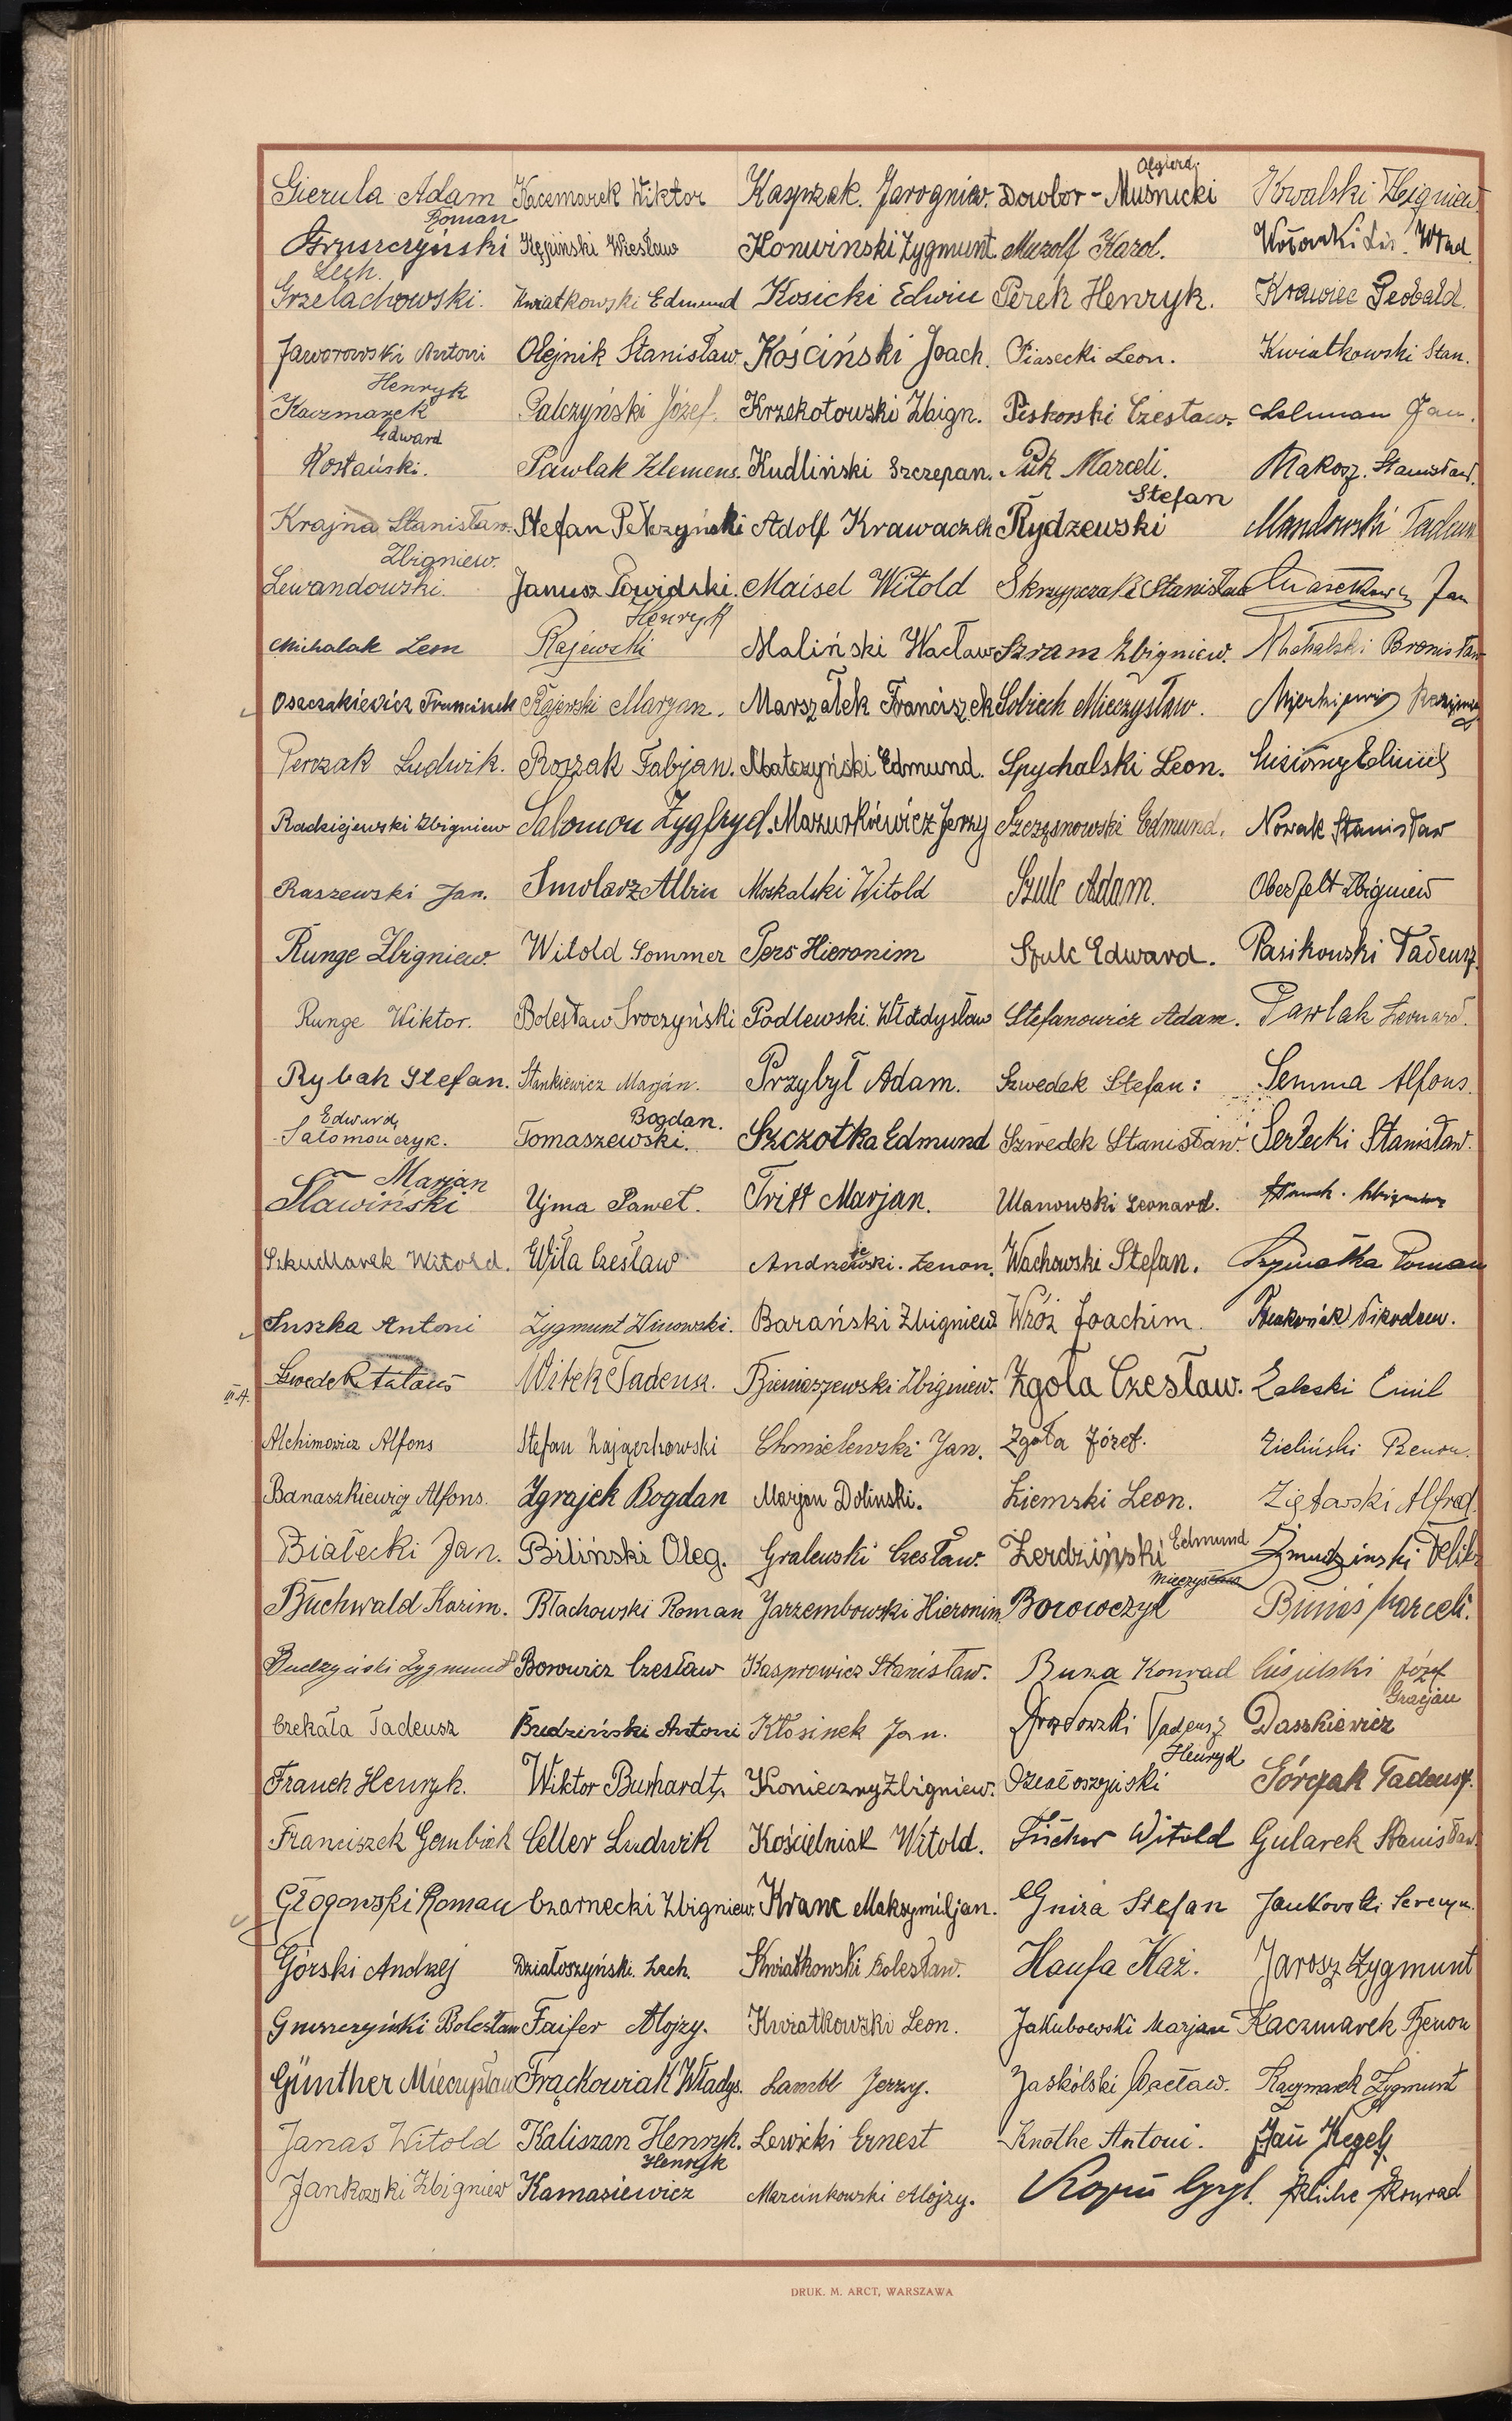 Gierula Adam
Roman
Gruszczyński
Lech.
Grzelachowski.
Jaworowski Antoni
Henryk
Kaczmarek
Edward
Kostański.
Krajna Stanisław.
Zbigniew.
Lewandowski.
Michalak Leon
Oszczakiewicz Franciszek
Perozak Ludwik.
Radziejewski Zbigniew
Raszewski Jan.
Runge Zbigniew.
Runge Wiktor.
Rybak Stefan.
Edward
Salomończyk.
Marjan
Sławiński
Szkudlarek Witold.
Suszka Antoni
Szwedek
Alchimowicz Alfons
Banaszkiewicz Alfons.
Białecki Jan.
Buchwald Kazim.
Budzyński Zygmunt
Czekała Tadeusz
Franek Henryk.
Franciszek Gembiak
Głogowski Roman
Górski Andrzej
Gruszczyński Bolesław
Günther Mieczysław
Janas Witold
Jankowski Zbigniew
Kaczmarek Wiktor
Kępiński Wiesław
Kwiatkowski Edmund
Olejnik Stanisław.
Palczyński Józef.
Pawlak Klemens.
Stefan Pełczyński
Janusz Powidzki.
Henryk
Rajewski
Rajewski Marjan.
Rojzak Fabjan.
Salomon Zygfryd.
Smolarz Albin
Witold Sommer
Bolesław Sroczyński
Stankiewicz Marján.
Bogdan.
Tomaszewski.
Ujma Paweł.
Wiła Czesław
Zygmunt Winowski.
Witek Tadeusz.
Stefan Zajączkowski
Zgrajek Bogdan
Biliński Oleg.
Błachowski Roman
Borowicz Czesław
Budziński Antoni
Wiktor Burhardt.
Celler Ludwik
Czarnecki Zbigniew.
Działoszyński. Lech.
Faifer Alojzy.
Frąckowiak Władys.
Kaliszan Henryk.
Henryk
Kamasiewicz
Kasprzak. Jarogniew.
Konwinski Zygmunt
Kosicki Edwin
Kościński Joach.
Krzekotowski Zbign.
Kudliński Szczepan.
Adolf Krawaczek
Maisel Witold
Maliński Wacław
Marszałek Franciszek
Małczyński Edmund.
Mazurkiewicz Jerzy
Moskalski Witold
Pers Hieronim
Podlewski. Władysław
Przybył Adam.
Szczotka Edmund
Tritt Marjan.
Andrzejewski. Zenon.
Barański Zbigniew
Bieniaszewski Zbigniew.
Chmielewski Jan.
Marjan Dolinski.
Gralewski Czesław.
Jarzembowski Hieronim
Kasprowicz Stanisław.
Kłosinek Jan.
Konieczny Zbigniew.
Kościelniak Witold.
Kranc Maksymiljan.
Kwiatkowski Bolesław.
Kwiatkowski Leon.
Lambl Jerzy.
Lewicki Ernest
Marcinkowski Alojzy.
Olgierd.
Dowbor-Muśnicki
Muzolf Karol.
Perek Henryk.
Piasecki Leon.
Piskorski Czesław.
Puk Marceli.
Stefan
Rydzewski
Skrzypczak Stanisław
Szram Zbigniew.
Sobiech Mieczysław.
Spychalski Leon.
Szczęsnowski Edmund.
Szulc Adam.
Szulc Edward.
Stefanowicz Adam.
Szwedek Stefan:
Szwedek Stanisław.
Ulanowski Leonard.
Wachowski Stefan.
Wróż Joachim.
Zgoła Czesław.
Zgoła Józef.
Ziemski Leon.
Żerdziński Edmund
Mieczysław
Borowczyk
Buza Konrad
Drozdowski Tadeusz
Henryk
Działoszyński
Fischer Witold
Gniza Stefan
Haufa Kaz.
Jakubowski Marjan
Jaskólski Wacław.
Knothe Antoni.
Kowalski Zbigniew.
Krawiec Teobald.
Kwiatkowski Stan.
Lehman Jan.
Makosz. Stanisław.
Mandowski Tadeusz
Jan
Michalski Bronisław
Nowak Stanisław
Oberfelt Zbigniew
Pasikowski Tadeusz.
Pawlak Leonard.
Semma Alfons.
Serlecki Stanisław.
Szymałka Roman
Nikodem.
Zaleski Emil
Zieliński Benon.
Ziętowski Alfred.
Żmudzinski Feliks
Buniaś Marceli.
Cisielski Józef
Gracjan
Daszkiewicz
Górczak Tadeusz.
Gularek Stanisław
Jankowski Seweryn.
Jarosz Zygmunt
Kaczmarek Benon
Kaczmarek Zygmunt
Jan Kegel
Kliche Konrad
DRUK. M. ARCT, WARSZAWA